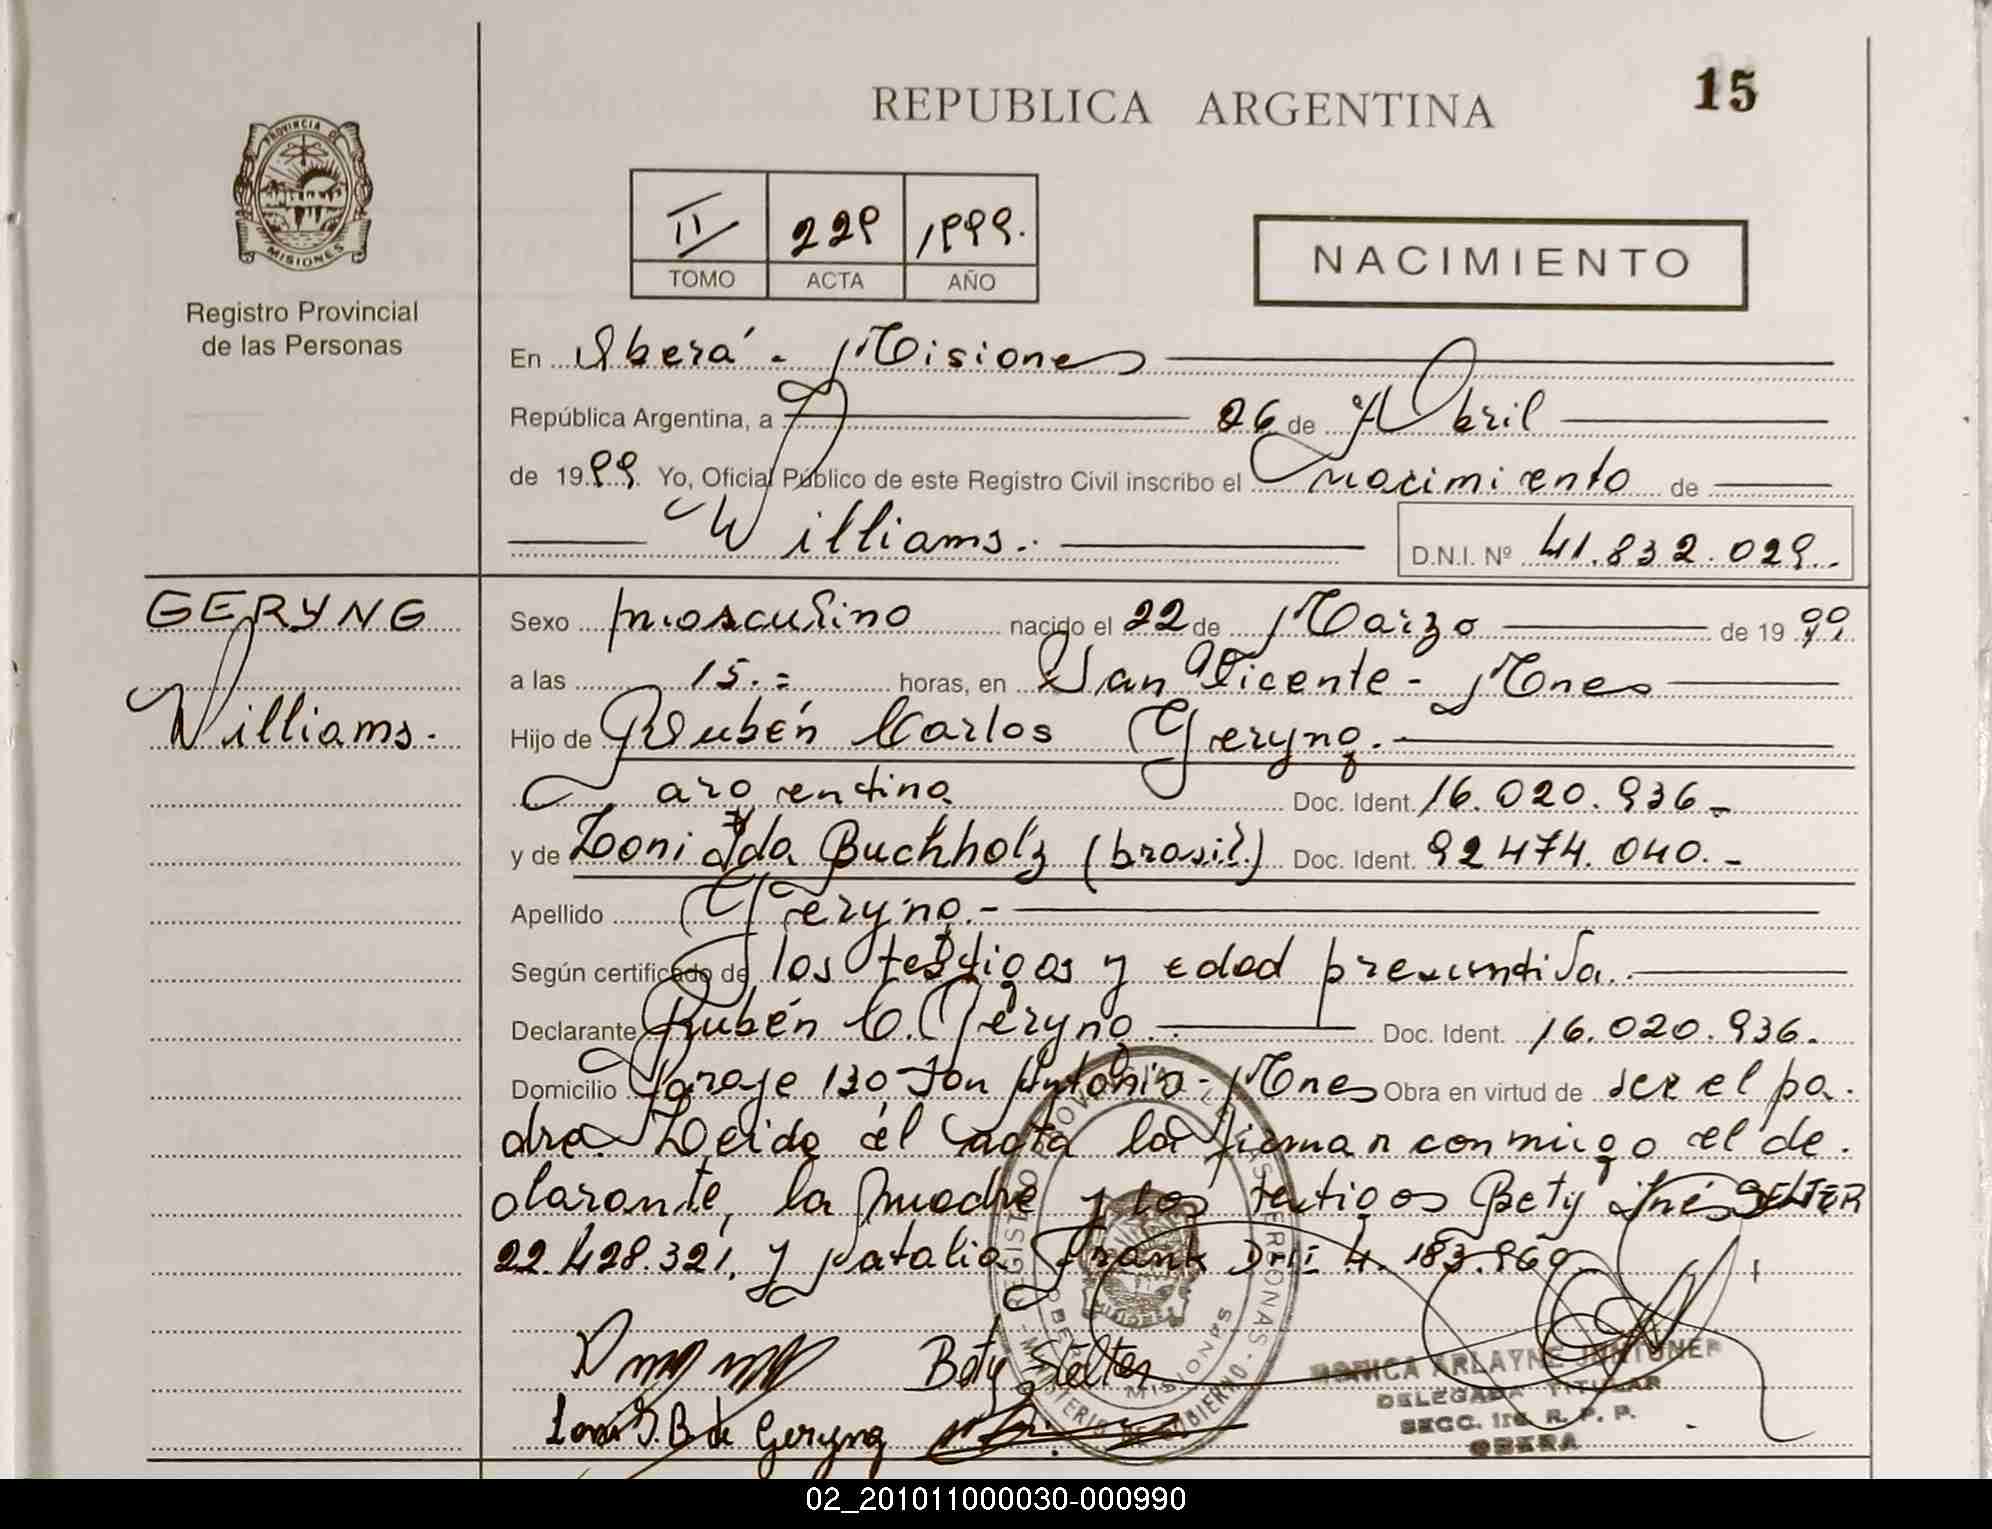 15
REPUBLICA ARGENTINA
PROVINCIA DE
MISIONES
Registro Provincial
de las Personas
II 229 1999.
TOMO ACTA AÑO
NACIMIENTO
En Oberá - Misiones
República Argentina, a 26 de Abril
de 1999. Yo, Oficial Público de este Registro Civil inscribo el nacimiento de
Williams.- D.N.I. Nº 41.832.029.-
GERYNG
Williams.
Sexo masculino nacido el 22 de Marzo de 1999
a las 15.= horas, en San Vicente - Mnes
Hijo de Rubén Carlos Geryng.-
argentina Doc. Ident. 16.020.936.-
y de Loni Ida Buchholz (brasil.) Doc. Ident. 92474.040.-
Apellido Geryng.-
Según certificado de los testigos y edad presuntiva.
Declarante Rubén C. Geryng. Doc. Ident. 16.020.936.
Domicilio Paraje 130 San Antonio - Mnes Obra en virtud de ser el pa-
dre. Leida el acta la firman conmigo el de-
clarante, la madre y los testigos Bety Inés SELTER
22.428.321. y Natalia Frank DNI: 4.183.960
Bety Selter
Loni I. B de Geryng
REGISTRO PROVINCIAL DE LAS PERSONAS - MINISTERIO DE GOBIERNO -
OBERA MISIONES
MISIONES
MONICA ARLAYNE
DELEGADA TITULAR
SECC. 1ra. R. P. P.
OBERA
02_201011000030-000990